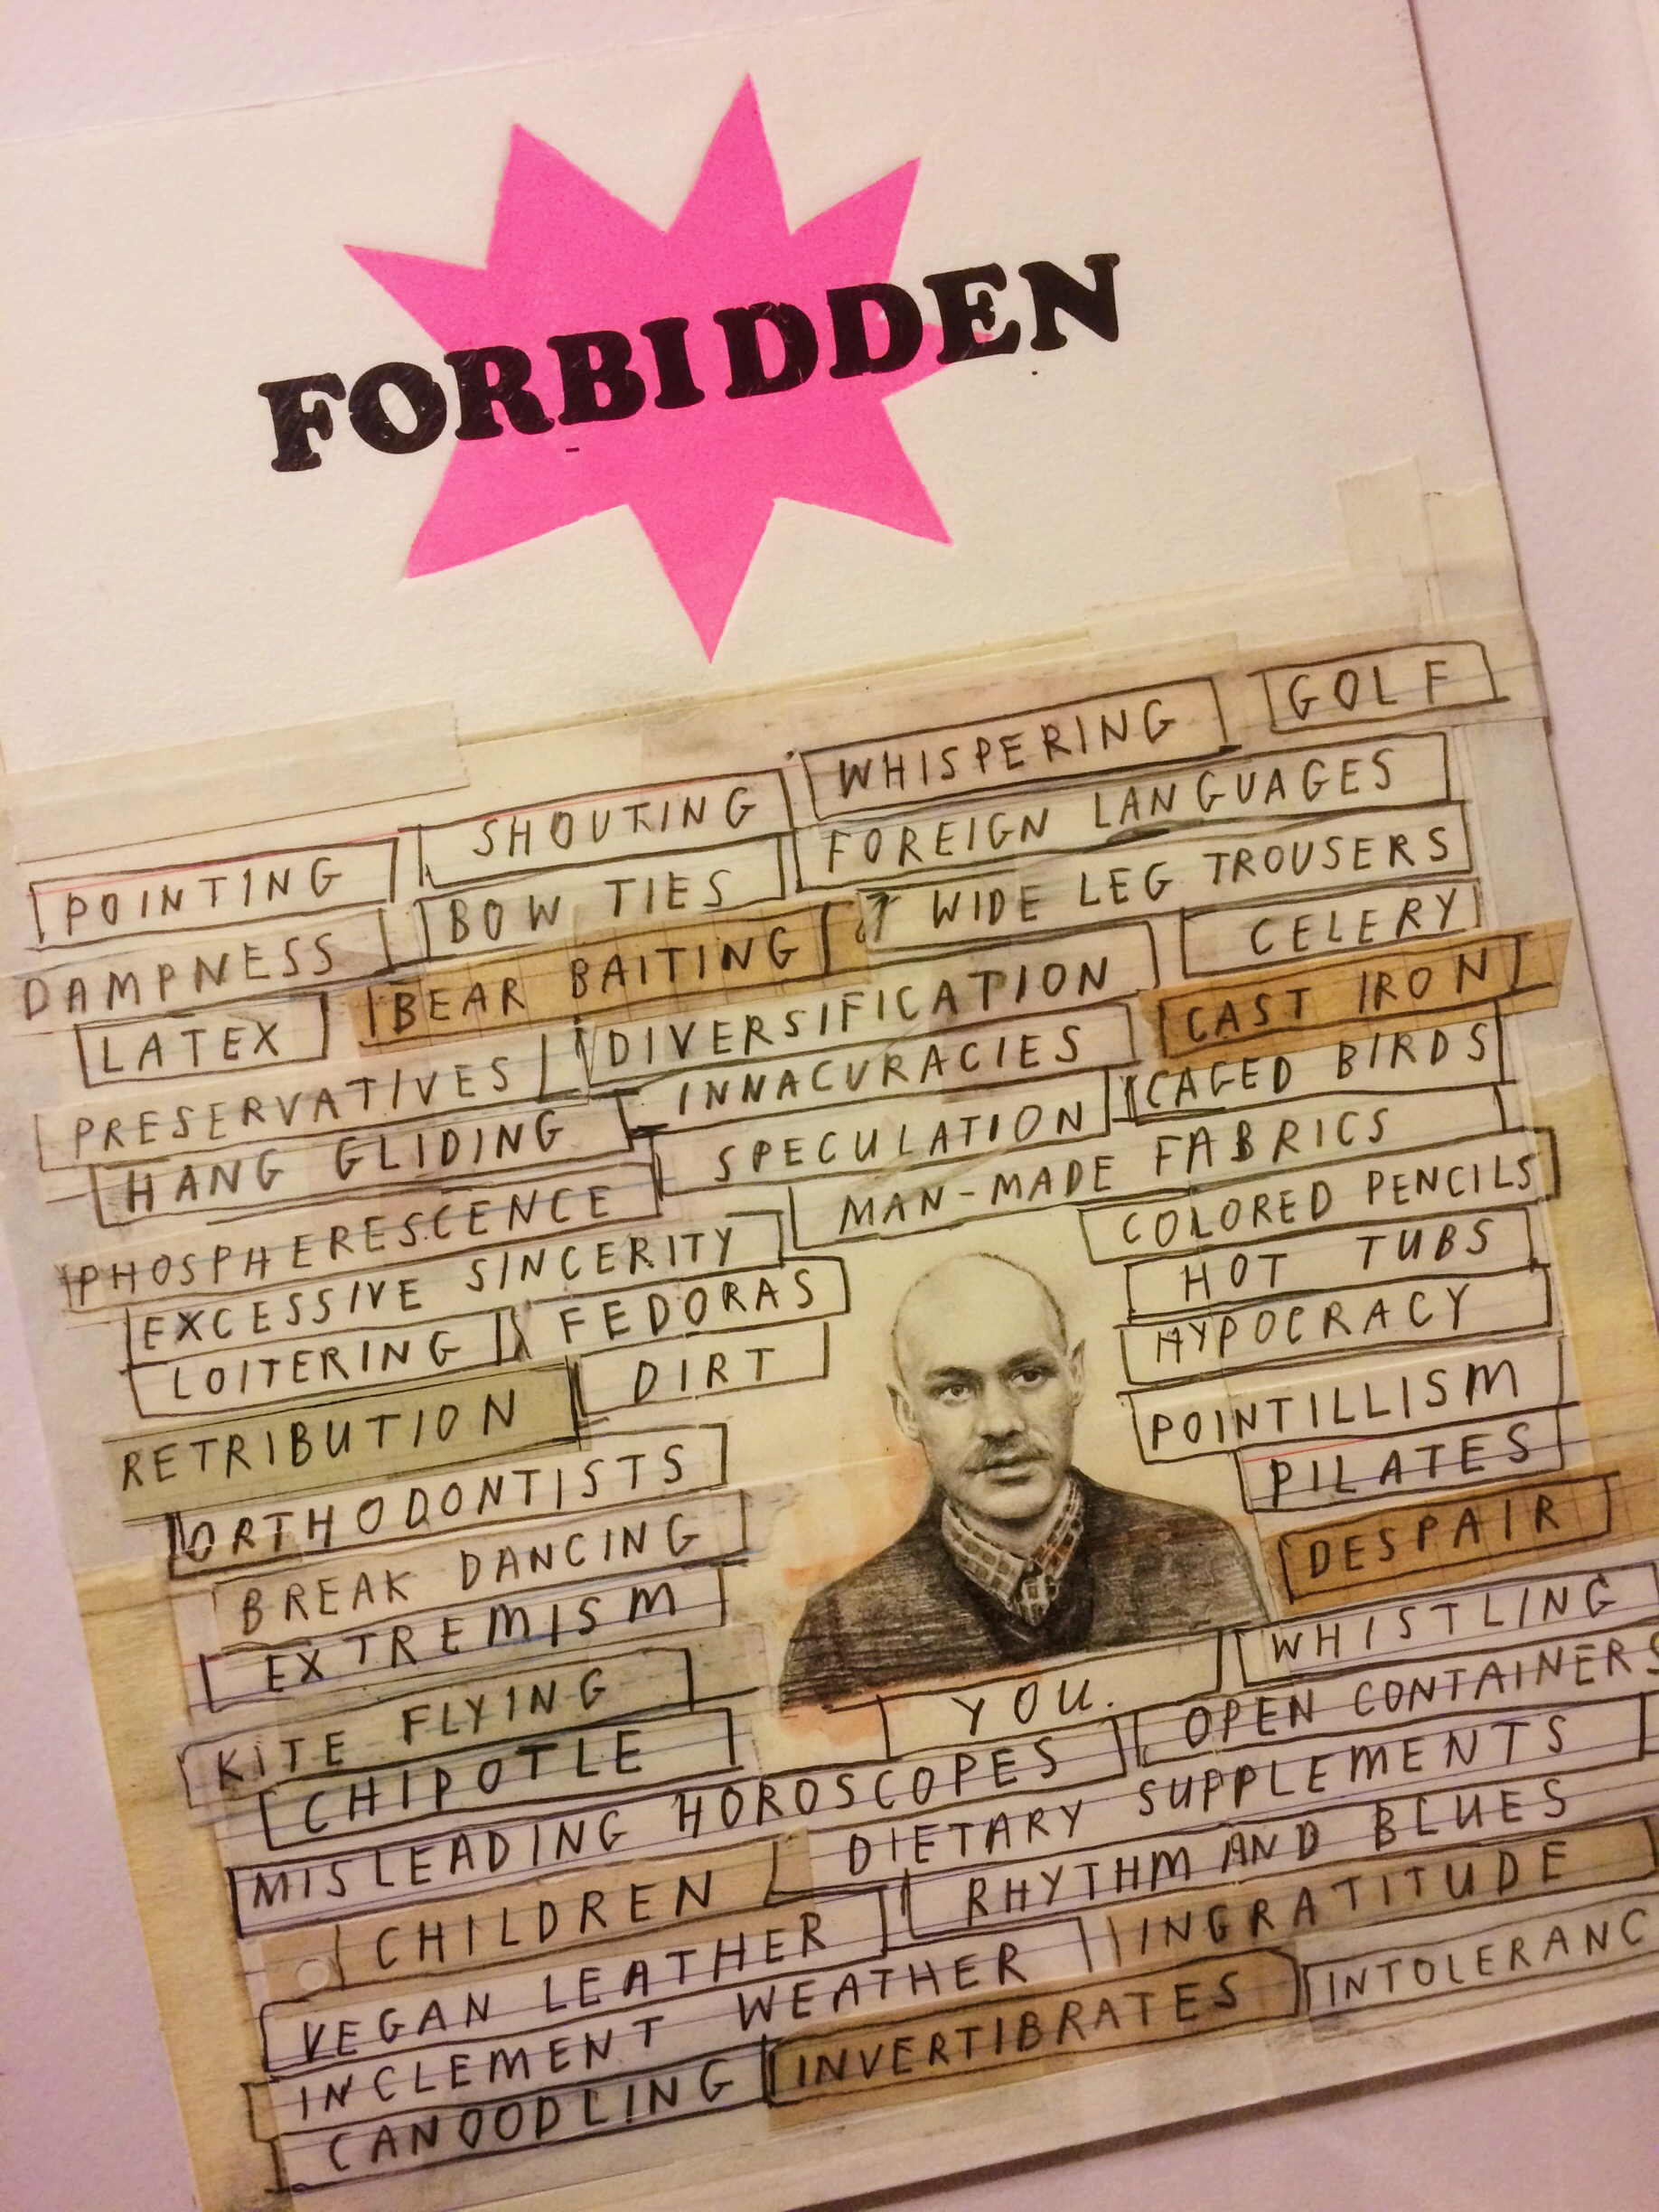 FORBIDDEN
WHISPERING GOLF
POINTING SHOUTING FOREIGN LANGUAGES
DAMPNESS BOW TIES WIDE LEG TROUSERS
LATEX BEAR BAITING CELERY
PRESERVATIVES DIVERSIFICATION CAST IRON
HANG GLIDING INNACURACIES CAGED BIRDS
PHOSPHERESCENCE SPECULATION MAN-MADE FABRICS
EXCESSIVE SINCERITY COLORED PENCILS
LOITERING FEDORAS HOT TUBS
RETRIBUTION DIRT HYPOCRACY
ORTHODONTISTS POINTILLISM
BREAK DANCING PILATES
EXTREMISM DESPAIR
KITE FLYING YOU. WHISTLING
CHIPOTLE OPEN CONTAINERS
MISLEADING HOROSCOPES DIETARY SUPPLEMENTS
CHILDREN RHYTHM AND BLUES
VEGAN LEATHER INGRATITUDE
INCLEMENT WEATHER INTOLERANC
CANOODLING INVERTIBRATES